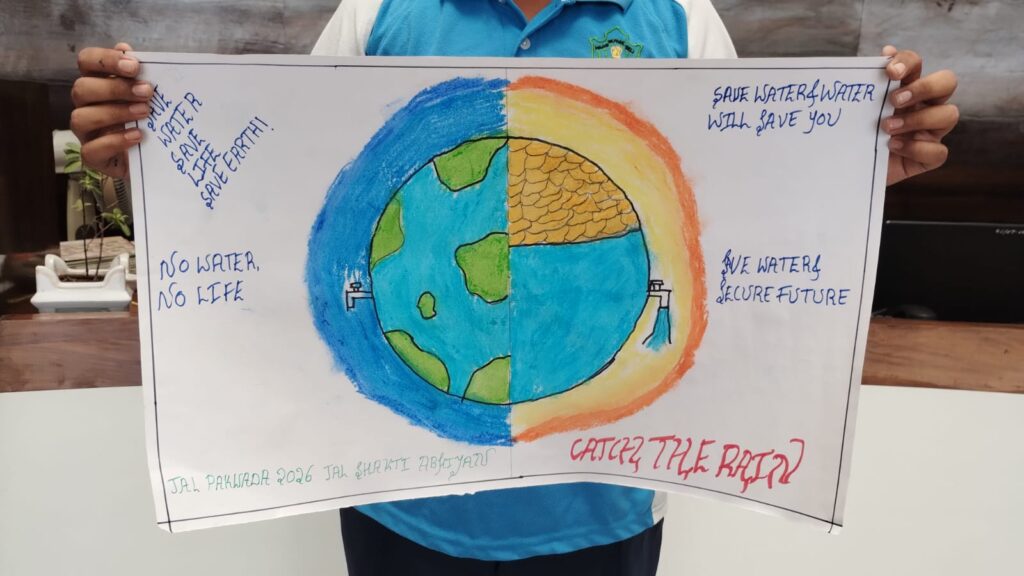 SAVE
WATER
SAVE
LIFE
SAVE EARTH!
SAVE WATER & WATER
WILL SAVE YOU
NO WATER,
NO LIFE
SAVE WATER &
SECURE FUTURE
CATCH THE RAIN
JAL PAKWADA 2026 JAL SHAKTI ABHIYAN